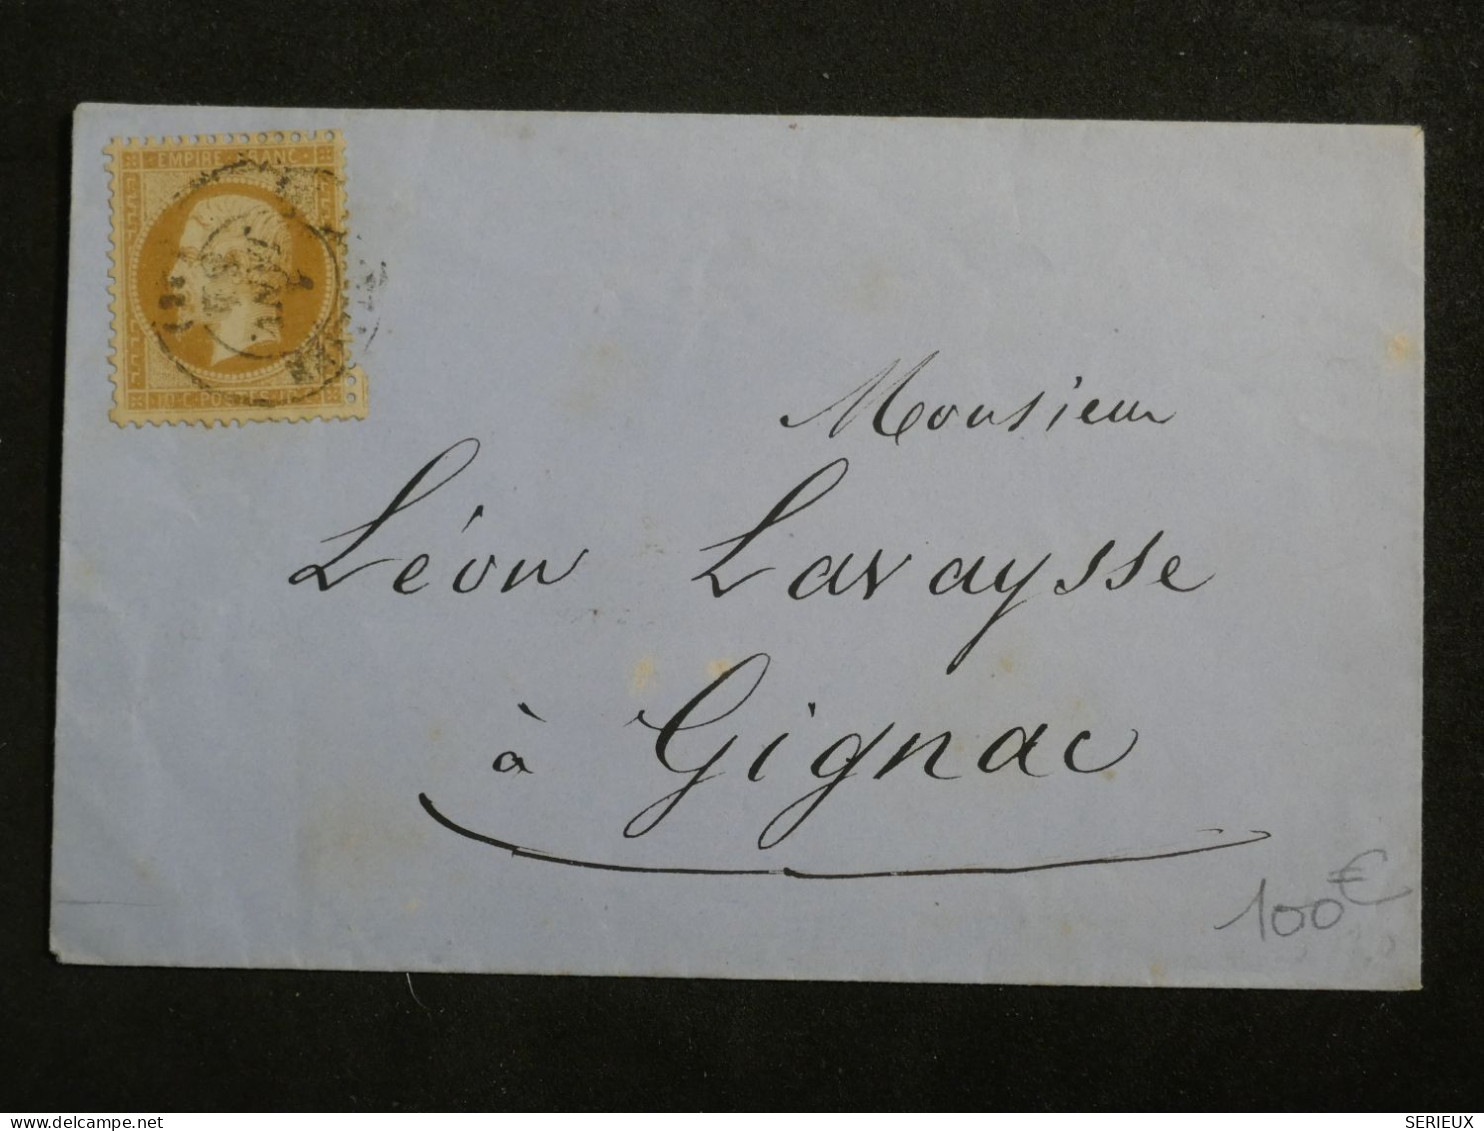 EMPIRE FRANC
10 C POSTES 10 C
Monsieur
Léon Lavaysse
à Gignac
100€
delcampe.net
SERIEUX